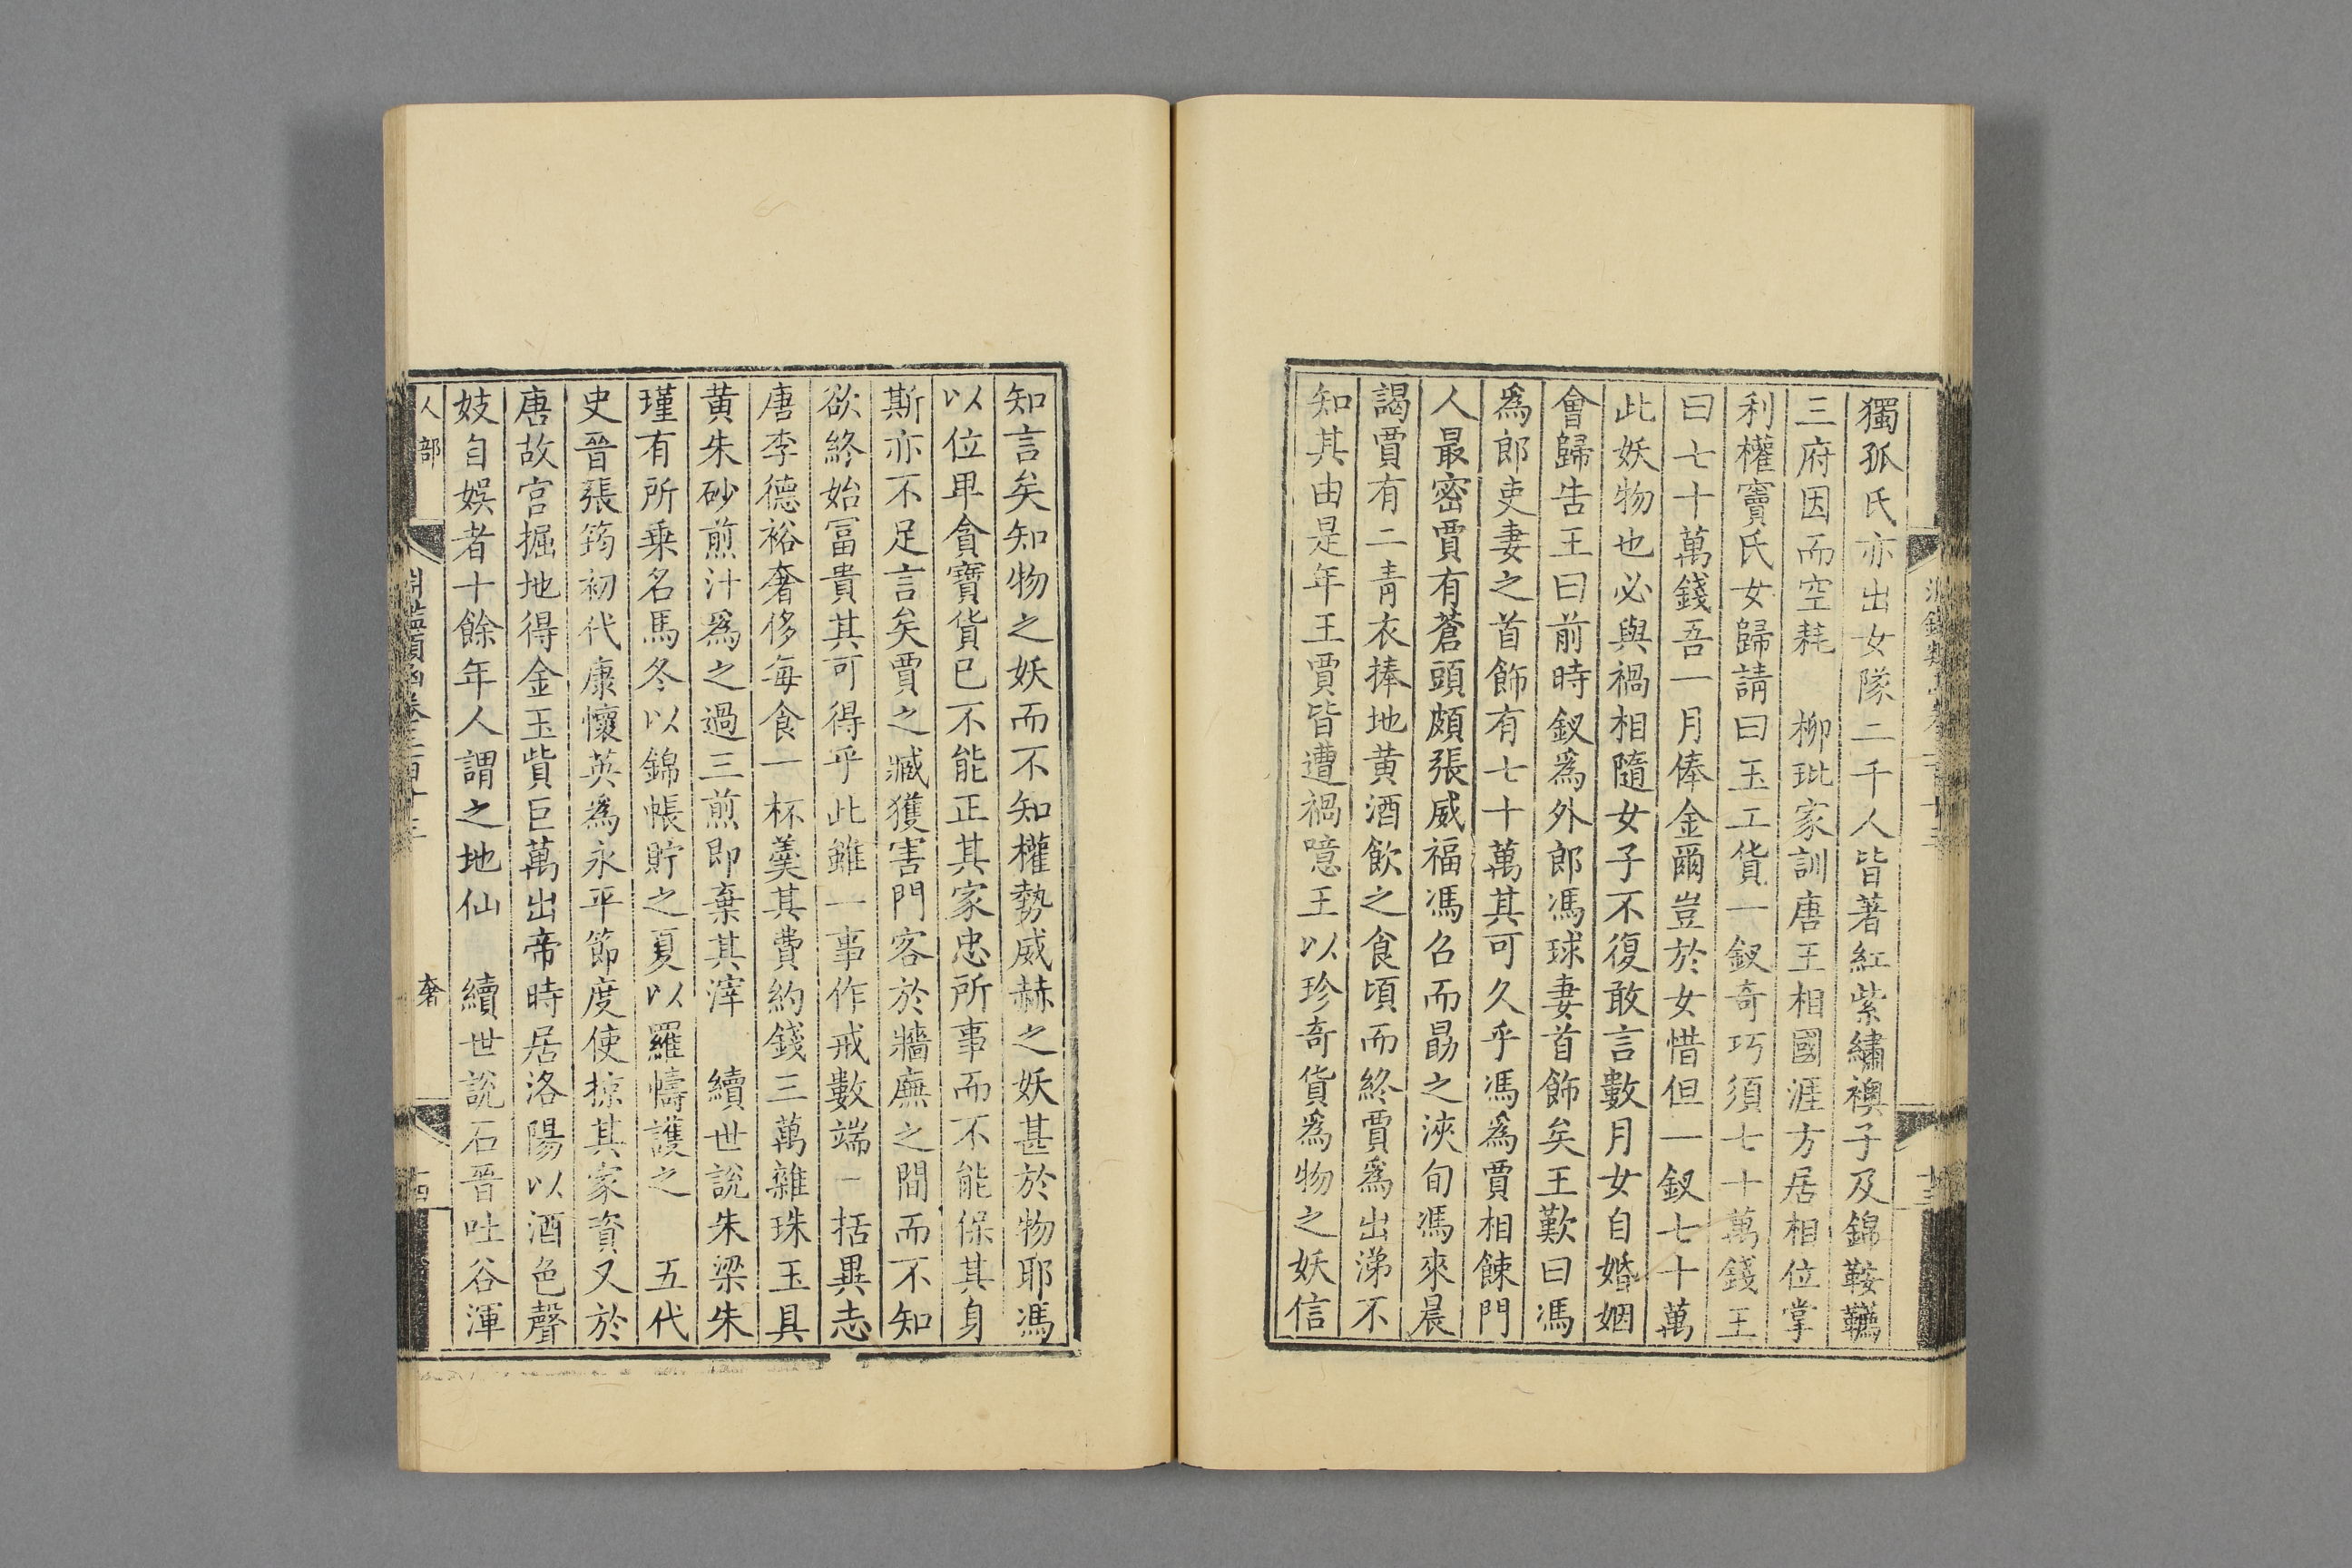 獨孤氏亦出女隊二千人皆著紅紫繡襖子及錦鞍韉
三府因而空耗　柳玭家訓唐王相國涯方居相位掌
利權竇氏女歸請曰玉工貨一釵奇巧須七十萬錢王
曰七十萬錢吾一月俸金爾豈於女惜但一釵七十萬
此妖物也必與禍相隨女子不復敢言數月女自婚姻
會歸告王曰前時釵爲外郎馮球妻首飾矣王歎曰馮
爲郎吏妻之首飾有七十萬其可久乎馮爲賈相餗門
人最密賈有蒼頭頗張威福馮召而勗之浹旬馮來晨
謁賈有二青衣捧地黄酒飲之食頃而終賈爲出涕不
知其由是年王賈皆遭禍噫王以珍奇貨爲物之妖信
知言矣知物之妖而不知權勢威赫之妖甚於物耶馮
以位卑貪寶貨已不能正其家忠所事而不能保其身
斯亦不足言矣賈之臧獲害門客於牆廡之間而不知
欲終始冨貴其可得乎此雖一事作戒數端　括異志
唐李德裕奢侈每食一杯羹其費約錢三萬雜珠玉具
黄朱砂煎汁爲之過三煎即棄其滓　續世說朱梁朱
瑾有所乗名馬冬以錦帳貯之夏以羅幬護之　五代
史晉張筠初代康懷英爲永平節度使掠其家資又於
唐故宫掘地得金玉貲巨萬出帝時居洛陽以酒色聲
妓自娱者十餘年人謂之地仙　續世說石晉吐谷渾
人部　淵鑑類函卷三百十三　奢　十四